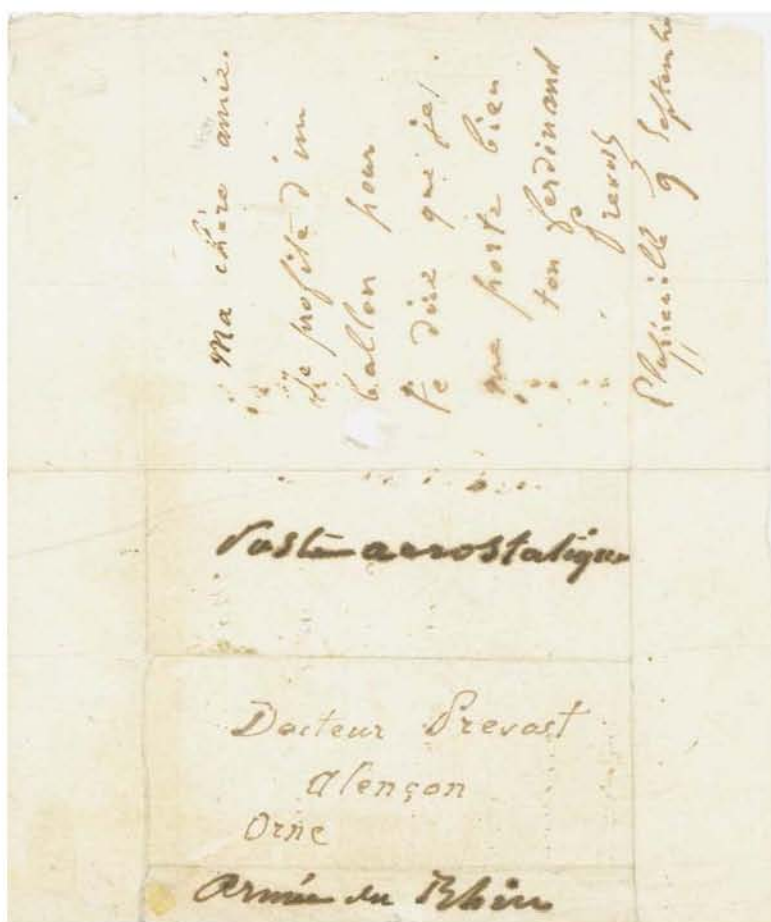 Ma chère amie.
Je profite d'un
ballon pour
te dire que je
me porte bien
ton Ferdinand
Prevost
Plappeville 9 Septembre
Poste aerostatique
Docteur Prevost
Alençon
Orne
Armée du Rhin